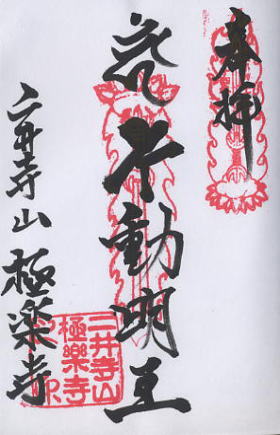 奉拝
不動明王
二井寺山 極楽寺
二井寺山
極樂寺
之印